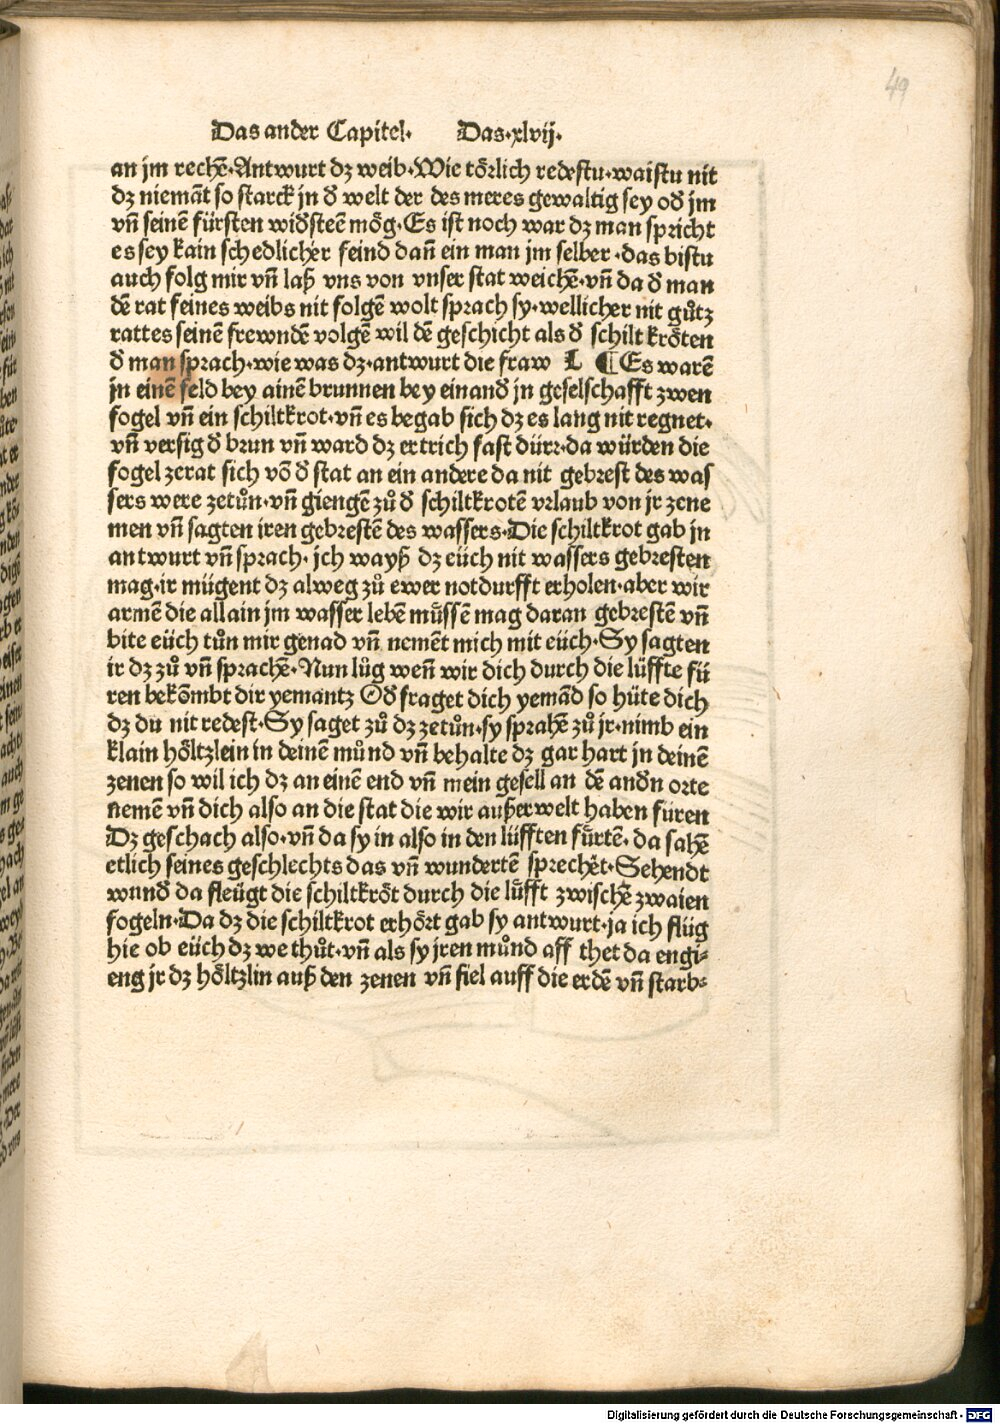 49
Das ander Capitel· Das·xlvij·
an jm rechē·Antwurt dz weib·Wie törlich redestu·waistu nit
dz niemāt so starck jn đ welt der des meres gewaltig sey ođ jm
vñ seinē fürsten wiđsteē mög·Es ist noch war dz man spricht
es sey kain schedlicher feind dañ ein man jm selber·das bistu
auch folg mir vñ laß vns von vnser stat weichē·vñ da đ man
dē rat seines weibs nit folgē wolt sprach sy·wellicher nit gůtz
rattes seinē frewndē volgē wil dē geschicht als đ schilt kröten
đ man sprach·wie was dz·antwurt die fraw L ¶ Es warē
jn einē feld bey ainē brunnen bey einanđ jn geselschafft zwen
fogel vñ ein schiltkrot·vñ es begab sich dz es lang nit regnet·
vñ versig đ brun vñ ward dz ertrich fast dürr·da würden die
fogel zerat sich vō đ stat an ein andere da nit gebrest des was
sers were zetůn·vñ giengē zů đ schiltkrotē vrlaub von jr zene
men vñ sagten iren gebrestē des wassers·Die schiltkrot gab jn
antwurt vñ sprach· jch wayß dz eüch nit wassers gebresten
mag·ir mügent dz alweg zů ewer notdurfft erholen·aber wir
armē die allain jm wasser lebē müssē mag daran gebrestē vñ
bite eüch tůn mir genad vñ nemēt mich mit eüch·Sy sagten
ir dz zů vñ sprachē·Nun lůg weñ wir dich durch die lüffte fü
ren bekōmbt dir yemantz Ođ fraget dich yemād so hüte dich
dz du nit redest·Sy saget zů dz zetůn·sy sprahē zů jr·nimb ein
klain höltzlein in deinē můnd vñ behalte dz gar hart jn deinē
zenen so wil ich dz an einē end vñ mein gesell an dē andn orte
nemē vñ dich also an die stat die wir außerwelt haben füren
Dz geschach also·vñ da sy in also in den lüfften fürtē·da sahē
etlich seines geschlechts das vñ wundertē sprechēt·Sehendt
wunđ da fleügt die schiltkröt durch die lüfft zwischē zwaien
fogeln·Da dz die schiltkrot erhört gab sy antwurt·ja ich flüg
hie ob eüch dz we thůt·vñ als sy jren můnd aff thet da engi⸗
eng jr dz höltzlin auß den zenen vñ fiel auff die erdē vñ starb⸗
Digitalisierung gefördert durch die Deutsche Forschungsgemeinschaft - DFG